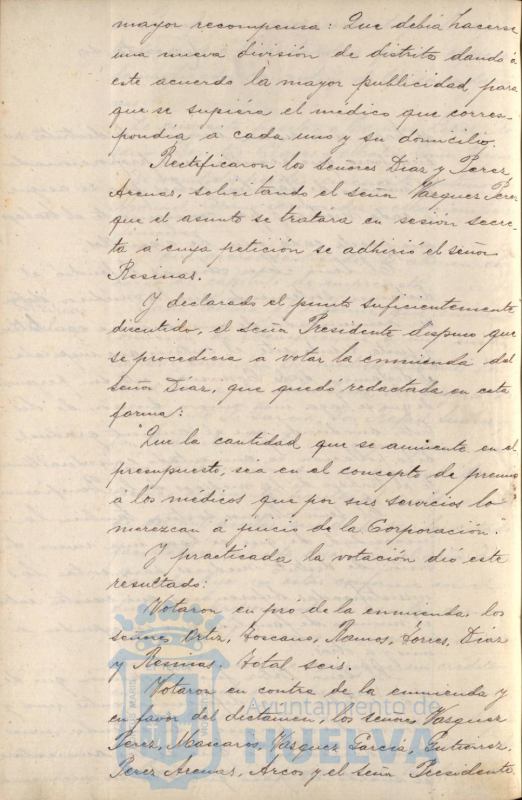 mayor recompensa: Que debia hacerse
una nueva división de distrito dando á
este acuerdo la mayor publicidad para
que se supiéra el médico que corres-
pondia á cada uno y su domicilio.
Rectificaron los señores Diaz y Perez
Arenas, solicitando el señor Vazquez Perez
que el asunto se tratára en sesión secre-
ta á cuya petición se adhirió el señor
Resinas.
Y declarado el punto suficientemente
discutido, el señor Presidente dispuso que
se procediera á votar la enmienda del
señor Diaz, que quedó redactada en esta
forma:
"Que la cantidad que se aumente en el
presupuesto, sea en el concepto de premio
á los médicos que por sus servicios lo
merezcan á juicio de la Corporación."
Y practicada la votación dió este
resultado:
Votaron en pró de la enmienda, los
señores Ortiz, Toscano, Ramos, Torres, Diaz
y Resinas. Total seis.
Votaron en contra de la enmienda y
en favor del dictamen, los señores Vazquez
Perez, Mascaros, Vazquez Garcia, Gutierrez,
Perez Arenas, Arcos y el señor Presidente.
Ayuntamiento de
HUELVA